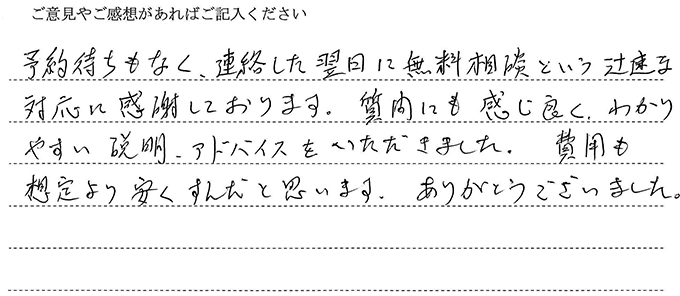 ご意見やご感想があればご記入ください
予約待ちもなく、連絡した翌日に無料相談という迅速な
対応に感謝しております。質問にも感じ良く、わかり
やすい説明、アドバイスをいただきました。費用も
想定より安くすんだと思います。ありがとうございました。